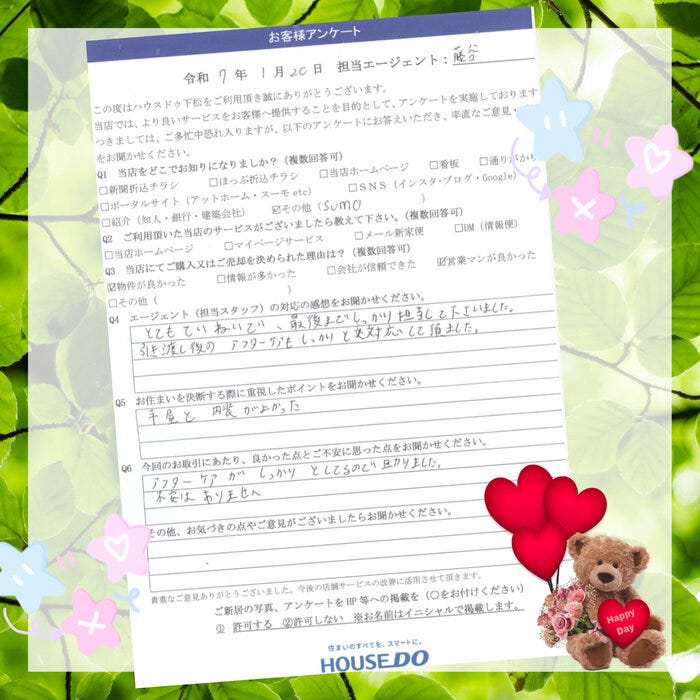 お客様アンケート
令和 7 年 1 月 20 日 担当エージェント：藤谷
この度はハウスドゥ下松をご利用頂き誠にありがとうございます。
当店では、より良いサービスをお客様へ提供することを目的として、アンケートを実施しております
つきましては、ご多忙中恐れ入りますが、以下のアンケートにお答えいただき、率直なご意見・
をお聞かせください。
Q1 当店をどこでお知りになりましたか？（複数回答可）
□新聞折込チラシ □ほっぷ折込チラシ □当店ホームページ □看板 □通りがかり
□ポータルサイト（アットホーム・スーモ etc） □SNS（インスタ・ブログ・Google）
□紹介（知人・銀行・建築会社） ☑その他（SUMO ）
Q2 ご利用頂いた当店のサービスがございましたら教えて下さい。（複数回答可）
□当店ホームページ □マイページサービス □メール新家便 □DM（情報便）
Q3 当店にてご購入又はご売却を決められた理由は？（複数回答可）
☑物件が良かった □情報が多かった □会社が信頼できた ☑営業マンが良かった
□その他（ ）
Q4 エージェント（担当スタッフ）の対応の感想をお聞かせください。
とてもていねいで、最後までしっかり担当して下さいました。
引き渡し後のアフターケアもしっかりと対応して頂ました。
Q5 お住まいを決断する際に重視したポイントをお聞かせください。
平屋と 内装がよかった
Q6 今回のお取引にあたり、良かった点とご不安に思った点をお聞かせください。
アフターケアが しっかりとしてるので助かりました。
不安は ありません
その他、お気づきの点やご意見がございましたらお聞かせください。
貴重なご意見ありがとうございました。今後の店舗サービスの改善に活用させて頂きます。
ご新居の写真、アンケートをHP等への掲載を（○をお付けください）
① 許可する ②許可しない ※お名前はイニシャルで掲載します。
住まいのすべてを、スマートに。
HOUSE DO
Happy
Day